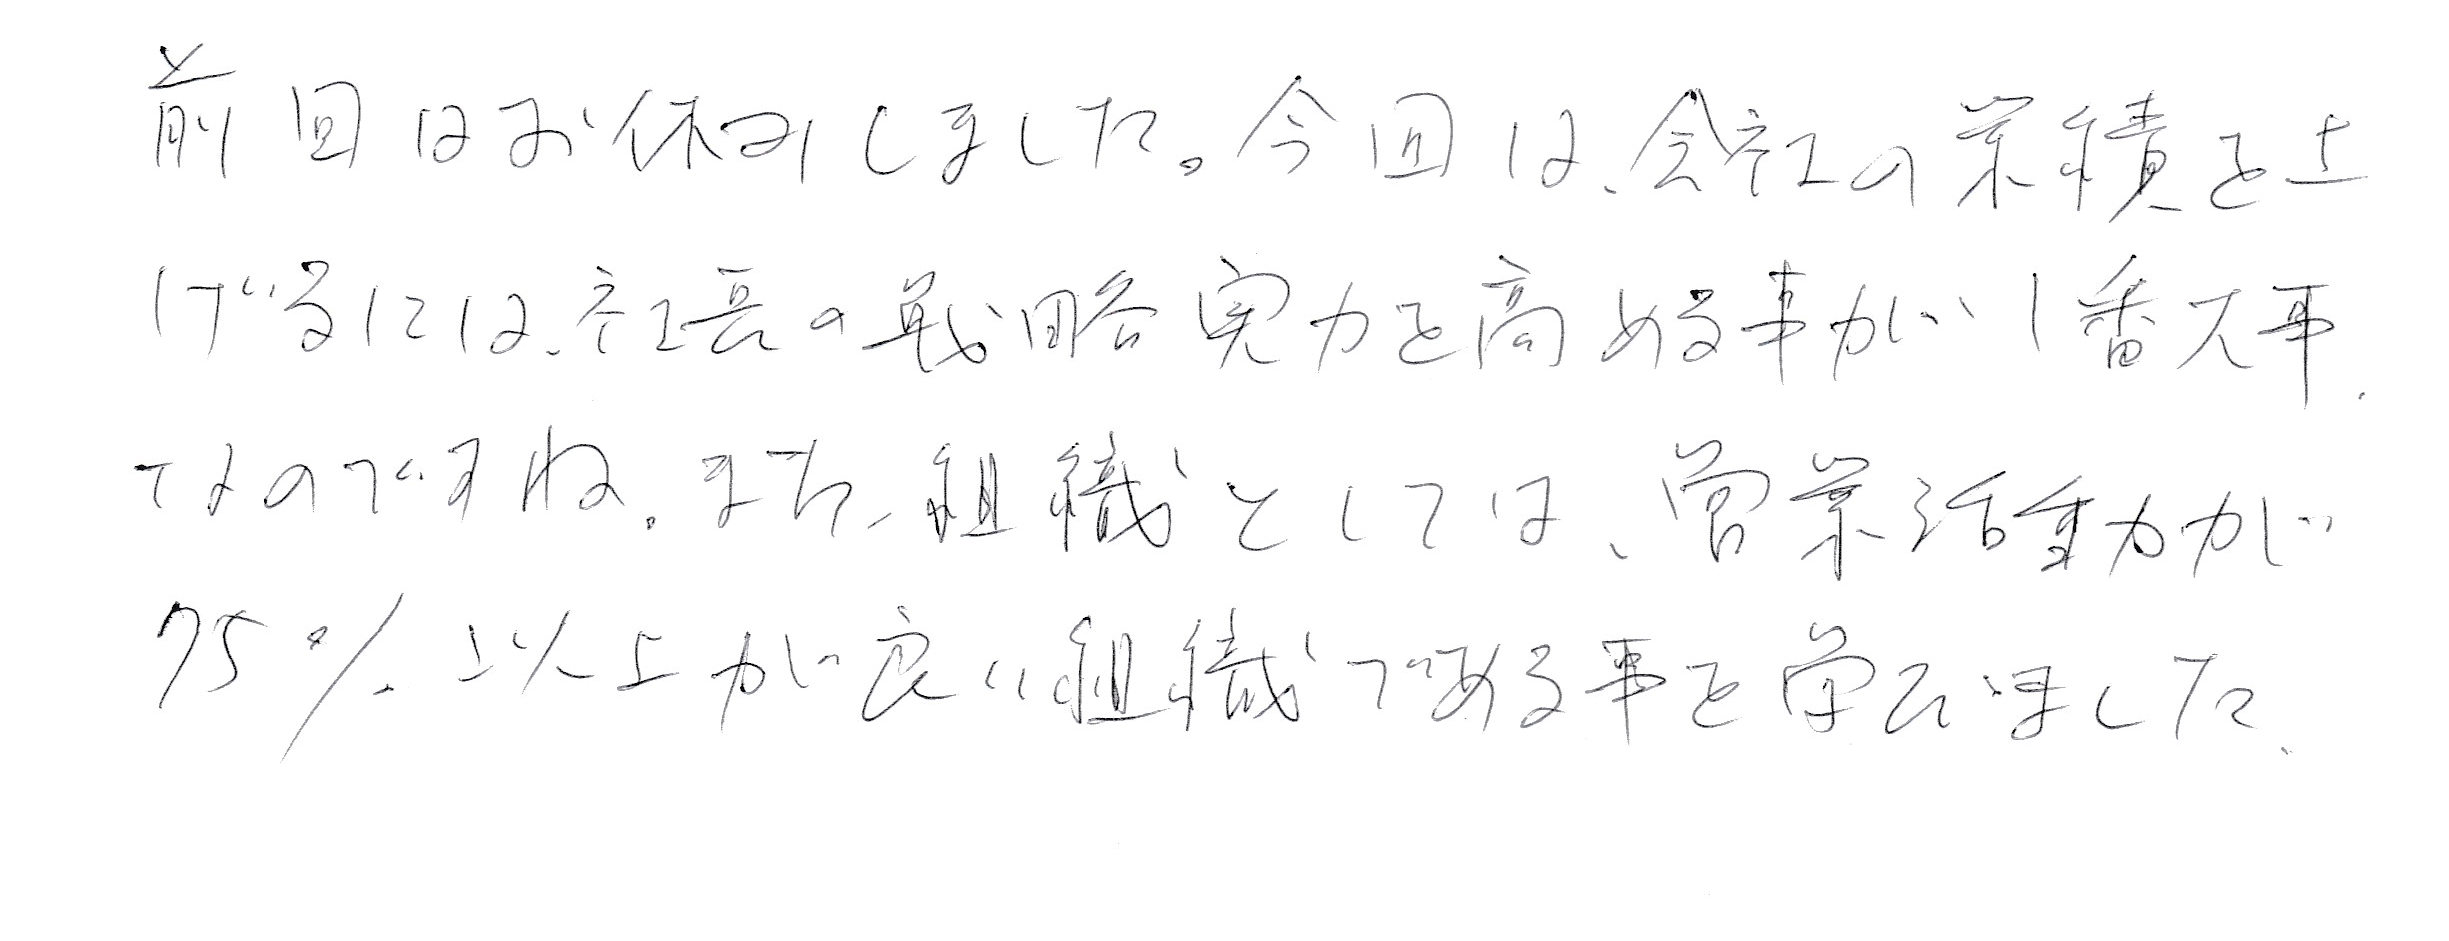 前回はお休みしました。今回は、会社の業積を上
げるには、社長の戦略実力を高める事が1番大事
なのですね。また、組織としては、営業活動が
75%以上が良い組織である事を学びました。